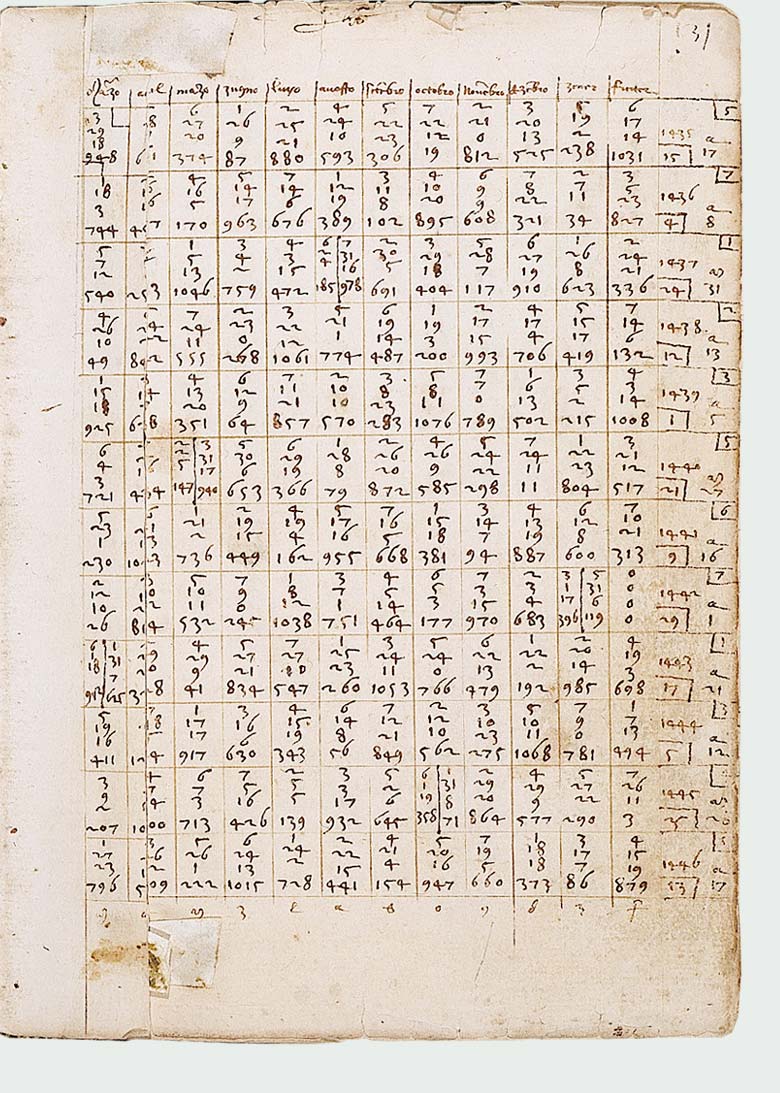 31
Marzo a l mazo zugno luyo avosto setebro octobro novebro dezebro zener fevrer
3 6 1 2 4 5 7 2 3 5 6 5
29 8 27 26 25 24 22 22 21 20 19 17 1435 a
18 20 9 21 10 23 12 0 13 2 14
948 6 1 374 87 880 593 306 19 812 525 238 1031 15 17
4 5 7 1 3 4 6 7 2 3 7
18 16 14 14 12 11 10 9 8 7 5 1436 a
3 16 5 17 6 19 8 20 9 22 11 23
744 457 170 963 676 389 102 895 608 321 34 827 4 8
5 1 3 4 6 7 2 3 5 6 1 2 1
7 5 4 2 1 31 30 29 28 27 26 24 1437
12 13 2 15 4 16 5 18 7 19 8 21
540 253 1046 759 472 185 978 691 404 117 910 623 336 24 31
4 7 2 3 5 6 1 2 4 5 7 2
26 24 24 23 22 21 19 19 17 17 15 14 1438 a
10 11 0 12 1 14 3 15 4 17 6
49 842 555 268 1061 774 487 200 993 706 419 132 12 13
1 4 6 7 2 3 5 7 1 3 4 3
15 14 13 12 11 10 8 8 7 6 5 3 1439 a
18 20 9 21 10 23 11 0 13 2 14
925 6 8 351 64 857 570 283 1076 789 502 215 1008 1 5
6 2 3 5 6 1 2 4 5 7 1 3 5
4 2 31 30 29 28 26 26 24 24 22 21 1440
4 5 17 6 19 8 20 9 22 11 23 12
721 4 4 147 940 653 366 79 872 585 298 11 804 517 21 27
5 1 2 4 5 7 1 3 4 6 7 6
23 21 21 19 19 17 16 15 14 13 12 10 1441 a
1 2 15 4 16 5 18 7 19 8 21
230 1023 736 449 162 955 668 381 94 887 600 313 9 16
2 5 7 1 3 4 6 7 2 3 5 0 7
12 10 9 8 7 5 5 3 2 1 31 0 1442 a
10 11 0 12 1 14 3 15 4 17 6 0
26 814 532 245 1038 751 464 177 970 683 396 119 0 29 1
6 1 4 5 7 1 3 5 6 1 2 4 1
1 31 29 29 27 27 25 24 24 22 22 20 19 1443 a
18 7 0 9 21 10 23 11 0 13 2 14 3
912 625 3 8 41 834 547 260 1053 766 479 192 985 698 17 21
5 7 1 3 4 6 7 2 3 5 7 1 3
19 8 17 16 15 14 12 12 10 10 9 7 1444 a
16 17 6 19 8 21 10 23 11 0 13
411 124 917 630 343 56 849 562 275 1068 781 494 5 12
3 4 6 7 2 3 5 6 1 2 4 5 7
9 7 7 5 5 3 2 1 31 29 29 27 26 1445
2 4 3 16 5 17 6 19 8 20 9 22 11
207 1000 713 426 139 932 645 358 71 864 577 290 3 25 20
1 5 6 1 2 4 5 7 1 3 4
27 26 26 24 24 22 21 20 19 18 17 15 1446 a
23 1 13 2 15 4 16 5 18 7 19
796 509 222 1015 728 441 154 947 660 373 86 879 13 17